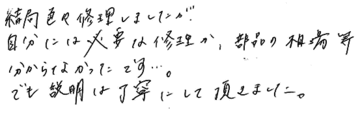 結局色々修理しましたが
自分には必要な修理か、部品の相場等
分からなかったです…。
でも説明は丁寧にして頂きました。